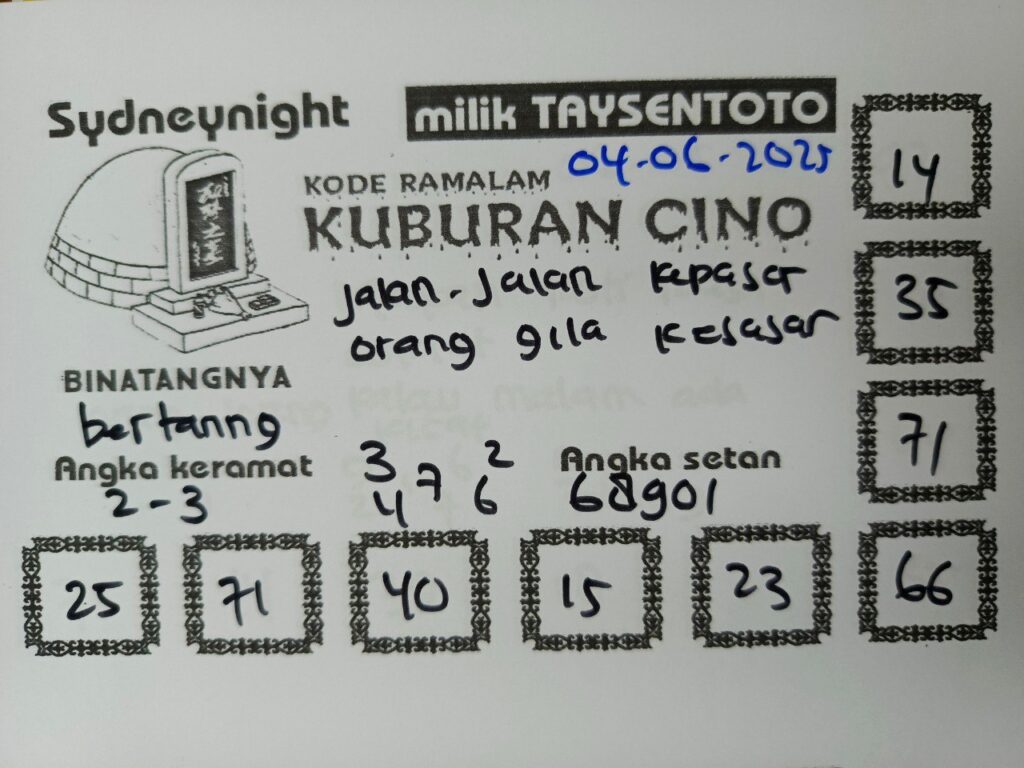 Sydneynight
milik TAYSENTOTO
04-06-2025
KODE RAMALAM
KUBURAN CINO
jalan-jalan kepasar
orang gila kesasar
BINATANGNYA
bertanng
Angka keramat
2-3
3 7 2
4 6
Angka setan
68901
14
35
71
66
25 71 40 15 23